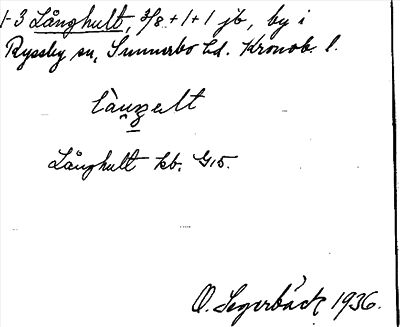 1-3 Långhult, 3/8+1+1 jb, by i
Ryssby sn, Sunnerbo hd. Kronob. l.
Långhult kb. G15.
O. Segerbäck 1936.